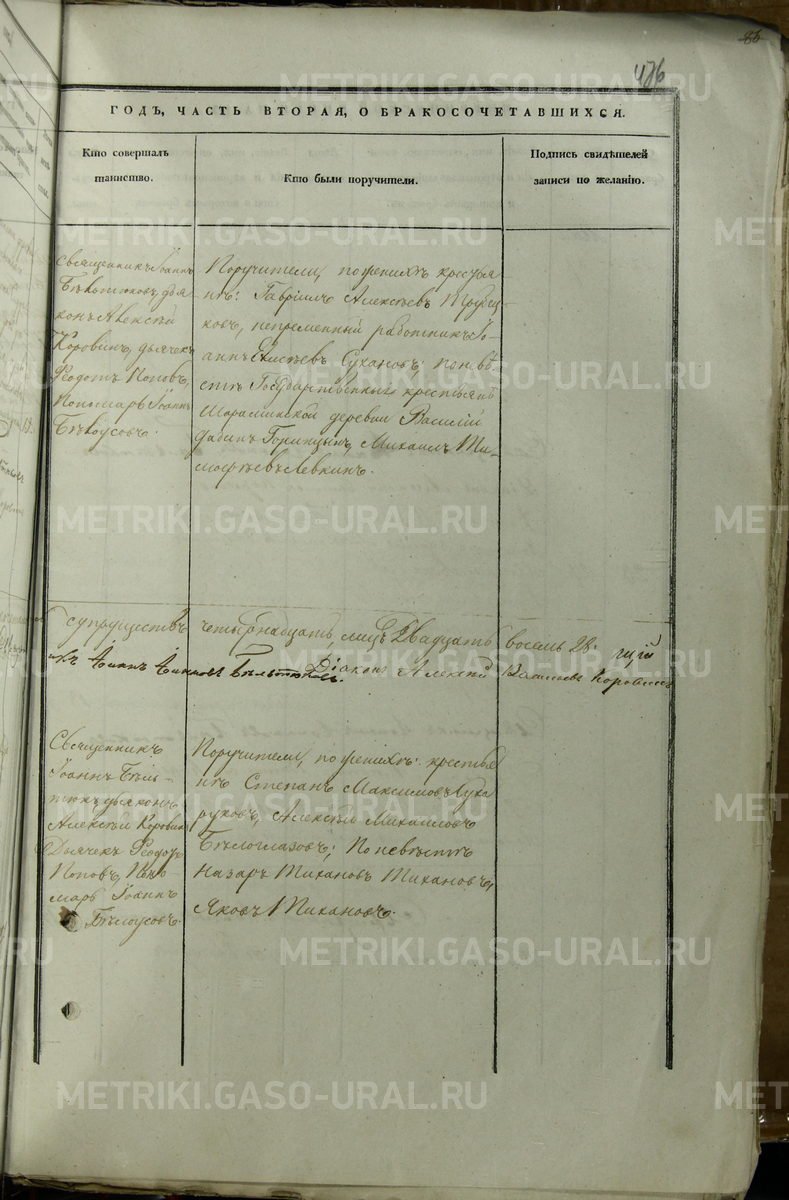 86
486
ГОДЪ, ЧАСТЬ ВТОРАЯ, О БРАКОСОЧЕТАВШИХСЯ.
Кто совершалъ
таинство.
Кто были поручители.
Подпись свидѣтелей
записи по желанію.
Священникъ Іоаннъ
дья
конъ Алексѣй
Коровинъ, дьячекъ
Ѳеодотъ Поповъ,
Пономарь Іоаннъ
Бѣлоусовъ.
Поручители, по женихѣ крестья
нѣ: Гавріилъ Алексѣевъ
ковъ, непременный работникъ Іо-
аннъ Елисѣевъ Сухановъ; по невѣ
стѣ Государственныя крестьяне
деревни Василій
Михаилъ Ти-
мофѣевъ Левкинъ.
супружествъ четырнадцать, лицъ двадцать восемь 28.
Діаконъ Алексѣй Васильевъ Коровинъ
Священникъ
Іоаннъ Бѣль-
тюковъ, дьяконъ
Алексѣй Коровинъ
Дьячекъ Ѳеодотъ
Поповъ, Поно-
марь Іоаннъ
Бѣлоусовъ.
Поручители, по женихѣ: крестья
нѣ Степанъ Максимовъ Суха
руковъ, Алексѣй Михаиловъ
Бѣлоглазовъ; По невѣстѣ
Назаръ Тихановъ Тихановъ,
Яковъ Тихановъ.
METRIKI.GASO-URAL.RU